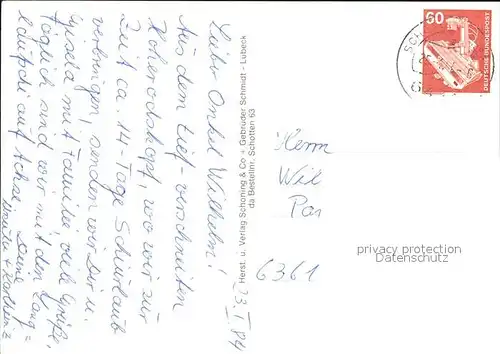 Lieber Onkel Wilhelm!
Aus dem tief-verschneiten
Hoherodskopf, wo wir zur
Zeit ca. 14-Tage Schiurlaub
verbringen, senden wir Dir u.
Gisela mit Familie viele Grüße,
Täglich sind wir mit den Lang=
laufschi auf Achse. Deine
+ Karlheinz
23. I. 84
Herst. u. Verlag Schöning & Co + Gebrüder Schmidt - Lübeck
da Bestellnr. Schotten 63
60
DEUTSCHE BUNDESPOST
SCH
Herrn
Wil
Par
6361
privacy protection
Datenschutz